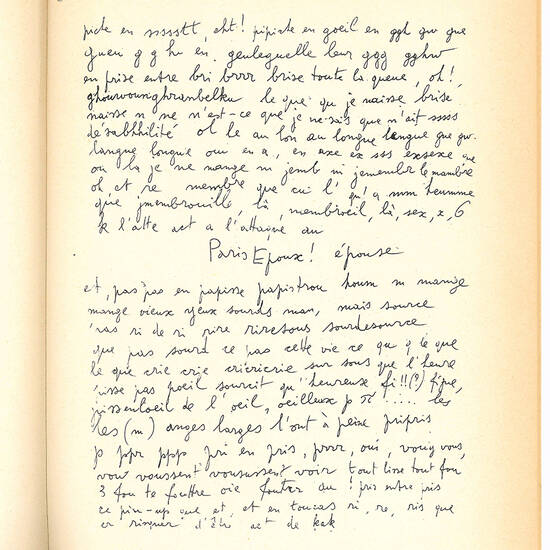 picte en ssssstt, cht! pipicte en goeil en ggh gu que
gueu g g h en geulequelle leur ggg gghw
en prise entre bri brrr brise toute la queue, oh!,
le que qu je naisse brise
naisse n ne n'est-ce que je ne sais que n'ait ssss
désabhhilité ol le au lon au longue langue que gu-
langue longuie oui en a, en axe ex sss exsexe que
ou la je ne mange m jemb m jemembr le membre
oh et re membre que cui l' qu' a mm heumme
que jmembrouille, là, membroeil, là, sex, x, 6
k l'atte act a l'attaque au
Paris Epoux! épouse
et, pas pas en papisse papistrou houm m mange
mange vieux yeux sourds man, mais source
ras ri de ri rire riresous sourdesource
que pas sourd ce pas cette vie ce qu q ce que
le que crie crije cricricrie sur sous que l'heure
uisse pas poeil sourcit qu'heureuse fi!!(?) fipe,
puissentoeil de l'oeil, oeilleux p π ..... les
les (m) anges larges l'ont à peine pripris
p ppr ppp pri en pris, prrr, oui, vouiy vous,
vouw voussent vousussent voir tout lisse tout fou
3 fou te fouttre oie foutre au! pris entre pris
ce pin-up que et, et en toucas ri, re, ris que
er risquer d'être act de kak